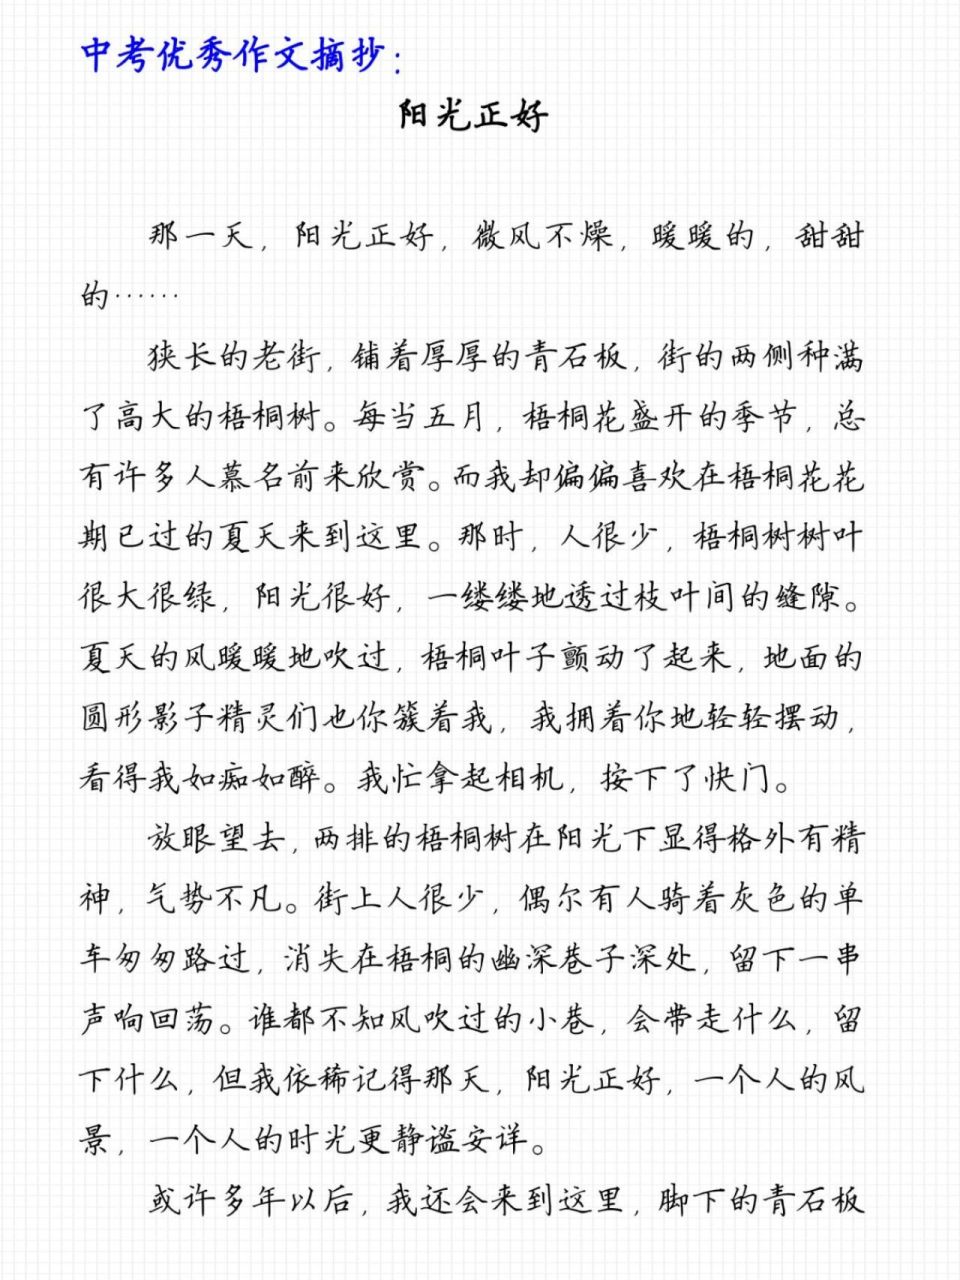 中考优秀作文摘抄：
阳光正好
那一天，阳光正好，微风不燥，暖暖的，甜甜
的……
狭长的老街，铺着厚厚的青石板，街的两侧种满
了高大的梧桐树。每当五月，梧桐花盛开的季节，总
有许多人慕名前来欣赏。而我却偏偏喜欢在梧桐花花
期已过的夏天来到这里。那时，人很少，梧桐树树叶
很大很绿，阳光很好，一缕缕地透过枝叶间的缝隙。
夏天的风暖暖地吹过，梧桐叶子颤动了起来，地面的
圆形影子精灵们也你簇着我，我拥着你地轻轻摆动，
看得我如痴如醉。我忙拿起相机，按下了快门。
放眼望去，两排的梧桐树在阳光下显得格外有精
神，气势不凡。街上人很少，偶尔有人骑着灰色的单
车匆匆路过，消失在梧桐的幽深巷子深处，留下一串
声响回荡。谁都不知风吹过的小巷，会带走什么，留
下什么，但我依稀记得那天，阳光正好，一个人的风
景，一个人的时光更静谧安详。
或许多年以后，我还会来到这里，脚下的青石板